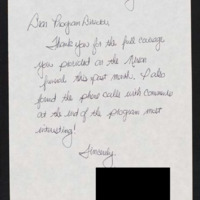 Dear Program Director,
Thank you for the full coverage
you provided on the Nixon
funeral this past month. I also
found the phone calls with comments
at the end of the program most
interesting!
Sincerely,